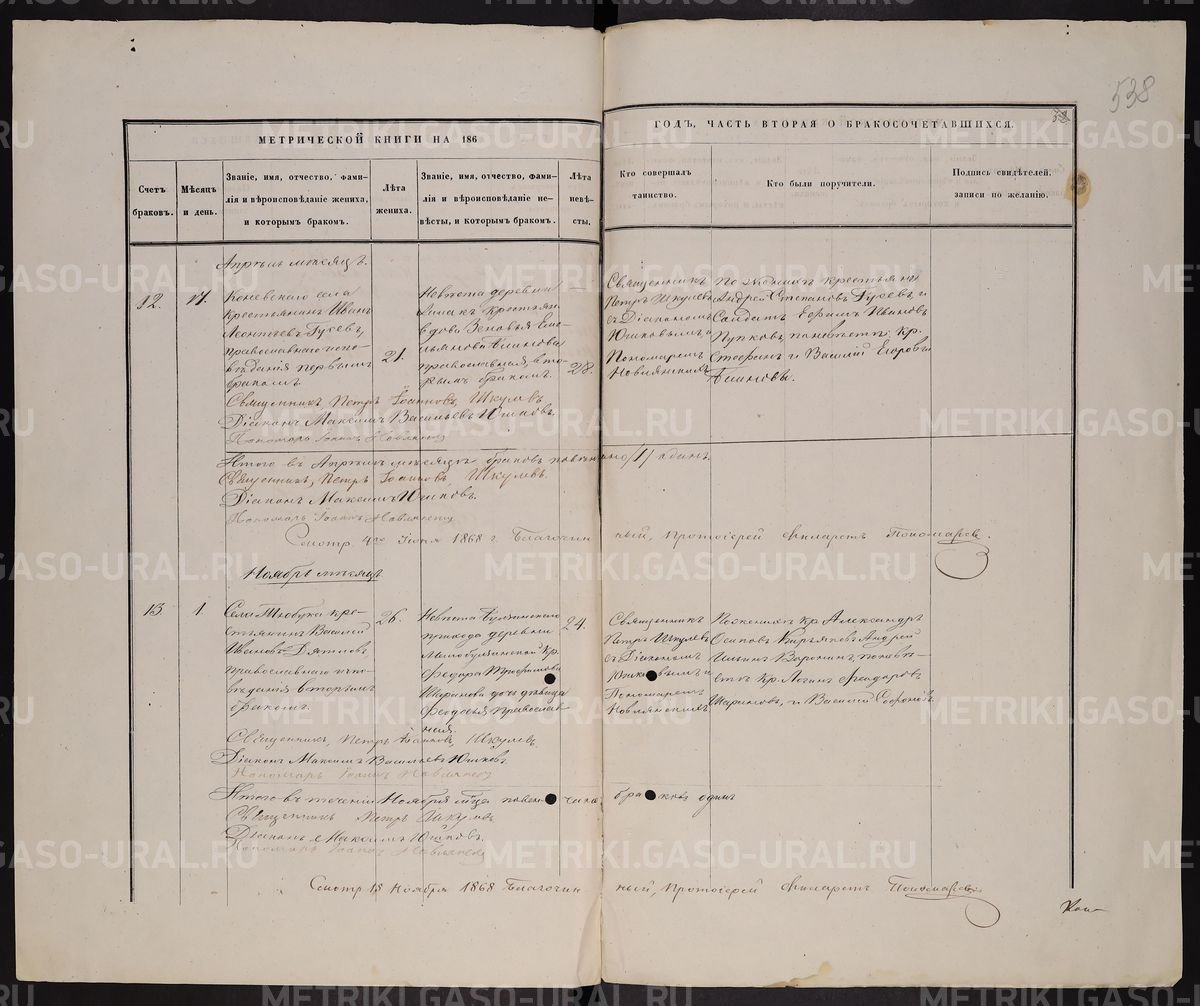 538
МЕТРИЧЕСКОЙ КНИГИ НА 186
ГОДЪ, ЧАСТЬ ВТОРАЯ О БРАКОСОЧЕТАВШИХСЯ.
Счетъ браковъ.
Мѣсяцъ и день.
Званіе, имя, отчество, фами-
лія и вѣроисповѣданіе жениха,
и которымъ бракомъ.
Лѣта
жениха.
Званіе, имя, отчество, фами-
лія и вѣроисповѣданіе не-
вѣсты, и которымъ бракомъ.
Лѣта
невѣ-
сты.
Кто совершалъ
таинство.
Кто были поручители.
Подпись свидѣтелей,
записи по желанію.
Апрѣль мѣсяцъ.
12.
Коневскаго села
Крестьянинъ Иванъ
Леонтьевъ Гусевъ,
православнаго испо-
вѣданія первымъ
бракомъ.
21.
Невѣста деревни
крестьян.
вдова Зеновья Еме-
льянова
православная, вто-
рымъ бракомъ.
28.
Священникъ
Петръ Шкулевъ
съ Діакономъ
Юшковымъ и
Пономаремъ
По женихѣ крестьяне
Андрей Степановъ Гусевъ и
Солдатъ Ефимъ Ивановъ
Пупковъ, по невѣстѣ: Кр.
Стефанъ и Василій Егоровы
Священникъ Петръ Іоанновъ Шкулевъ
Діаконъ Максимъ Васильевъ Юшковъ.
Пономарь Іоаннъ
Итого въ Апрѣлѣ мѣсяцѣ браковъ повѣнчано /1/ одинъ.
Священникъ, Петръ Іоанновъ, Шкулевъ.
Діаконъ Максимъ Юшковъ.
Пономарь Іоаннъ
Смотр. 4го Іюня 1868 г. Благочинный, Протоіерей Филаретъ Пономаревъ.
Ноябрь мѣсяцъ
13
1.
Села Тюбука кре-
стьянинъ Василій
Ивановъ Дятловъ
православнаго испо-
вѣданія вторымъ
бракомъ.
26.
Невѣста
прихода деревни
Кр.
Федора Трофимова
Шаранова дочь дѣвица
Феодосья православ-
ная.
24.
Священникъ
Петръ Шкулевъ
съ Діакономъ
Юшковымъ и
Пономаремъ
По женихѣ Кр. Александръ
Осиповъ Андрей
Ильинъ Воронинъ, по невѣ-
стѣ Кр. Логинъ Феодоровъ
и Василій
Священникъ, Петръ Іоанновъ, Шкулевъ
Діаконъ Максимъ Васильевъ Юшковъ.
Пономарь Іоаннъ
Итого въ теченіи Ноября м-ца повѣнчано браковъ одинъ
Священникъ Петръ Шкулевъ
Діаконъ Максимъ Юшковъ.
Пономарь Іоаннъ
Смотр. 18 Ноября 1868 Благочинный, Протоіерей Филаретъ Пономаревъ
METRIKI.GASO-URAL.RU